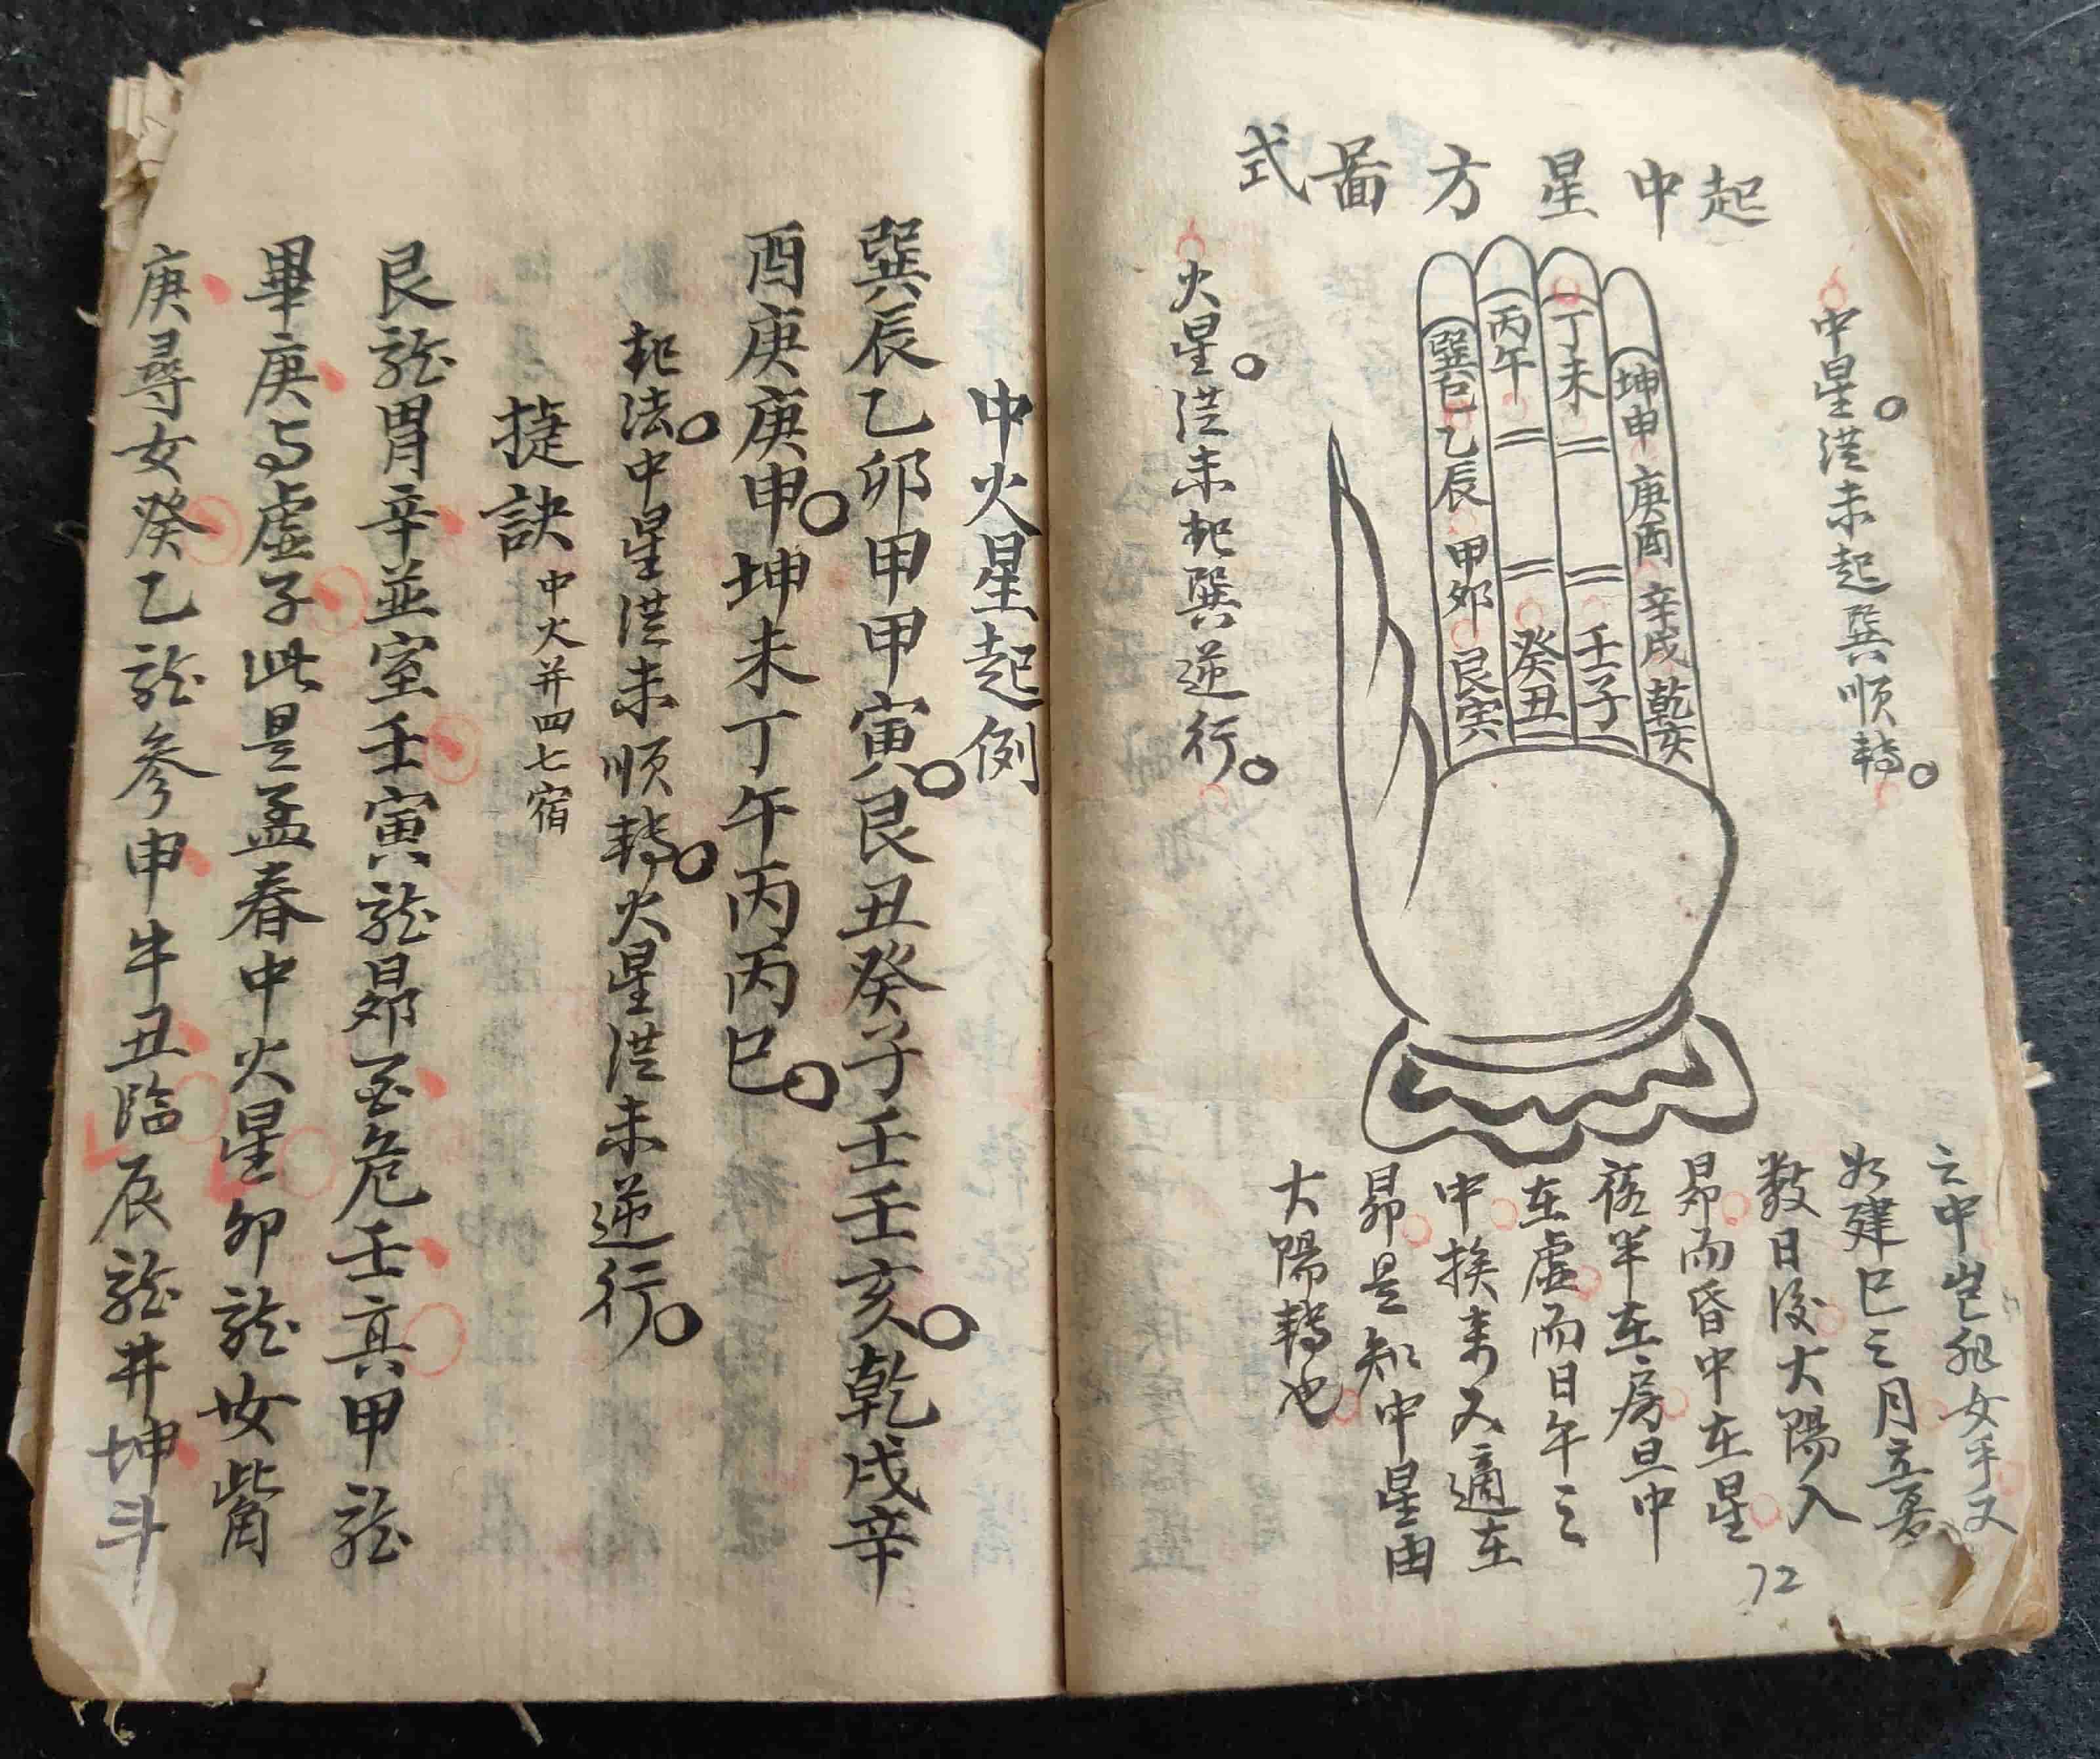 起中星方啚式
中星。從未起巽順轉。
巽巳乙辰甲卯艮寅
丙午
癸丑
丁未
壬子
坤申庚酉辛戌乾亥
火星。從未起巽逆行。
之中豈非女乎又
如建巳之月立夏
数日後大陽入
昴而昏中在星
夜半在房旦中
在虛而日午之
中挨来又適在
昴是知中星由
大陽轉也
72
中火星起例
巽辰乙卯甲甲寅。艮丑癸子壬壬亥。乾戌辛
酉庚庚申。坤未丁午丙丙巳。
起法。中星從未順轉。火星從未逆行。
捷訣中火并四七宿
艮龍胃辛並室壬寅龍昴至危壬真甲龍
畢庚与虛子此是孟春中火星卯龍女觜
庚尋女癸乙龍參申牛丑臨辰龍井坤斗